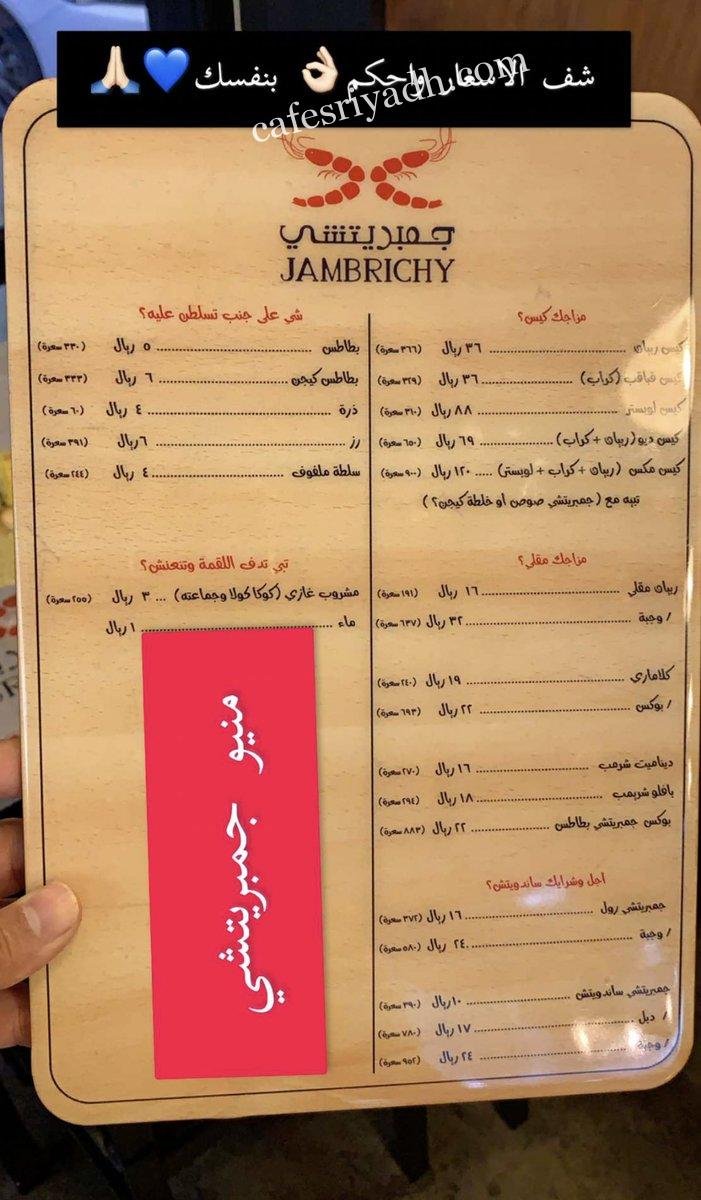 شف الاسعار واحكم👌🏻 بنفسك💙🙏🏻
cafesriyadh.com
جمبريتشي
JAMBRICHY
مزاجك كيس؟
كيس ربيان ........ ٣٦ ريال (٣٦٦ سعرة)
كيس قباقب (كراب) ........ ٣٦ ريال (٣٢٩ سعرة)
كيس لوبستر ........ ٨٨ ريال (٣١٠ سعرة)
كيس ديو (ربيان + كراب) ........ ٦٩ ريال (٦٥٠ سعرة)
كيس مكس (ربيان + كراب + لوبستر) ..... ١٢٠ ريال (٩٠٠ سعرة)
تبيه مع (جمبريتشي صوص او خلطة كيجن؟)
مزاجك مقلي؟
ربيان مقلي ........ ١٦ ريال (١٩١ سعرة)
/ وجبة ........ ٣٢ ريال (٦٣٧ سعرة)
كلاماري ........ ١٩ ريال (٢٤٠ سعرة)
/ بوكس ........ ٢٢ ريال (٦٩٣ سعرة)
ديناميت شرمب ........ ١٦ ريال (٢٧٠ سعرة)
بافلو شريمب ........ ١٨ ريال (٢٩٤ سعرة)
بوكس جمبريتشي بطاطس ........ ٢٢ ريال (٨٨٣ سعرة)
اجل وشرايك ساندويتش؟
جمبريتشي رول ........ ١٦ ريال (٣٧٢ سعرة)
/ وجبة ........ ٢٤ ريال (٥٨٠ سعرة)
جمبريتشي ساندويتش ........ ١٠ ريال (٣٩٠ سعرة)
/ دبل ........ ١٧ ريال (٧٨٠ سعرة)
/ وجبة ........ ٢٤ ريال (٩٥٢ سعرة)
شي على جنب تسلطن عليه؟
بطاطس ........ ٥ ريال (٣٣٠ سعرة)
بطاطس كيجن ........ ٦ ريال (٣٣٣ سعرة)
ذرة ........ ٤ ريال (٦٠ سعرة)
رز ........ ٦ ريال (٣٩١ سعرة)
سلطة ملفوف ........ ٤ ريال (٢٤٤ سعرة)
تبي تدف اللقمة وتنعنش؟
مشروب غازي (كوكا كولا وجماعته) ... ٣ ريال (٢٥٥ سعرة)
ماء ........ ١ ريال
منيو جمبريتشي